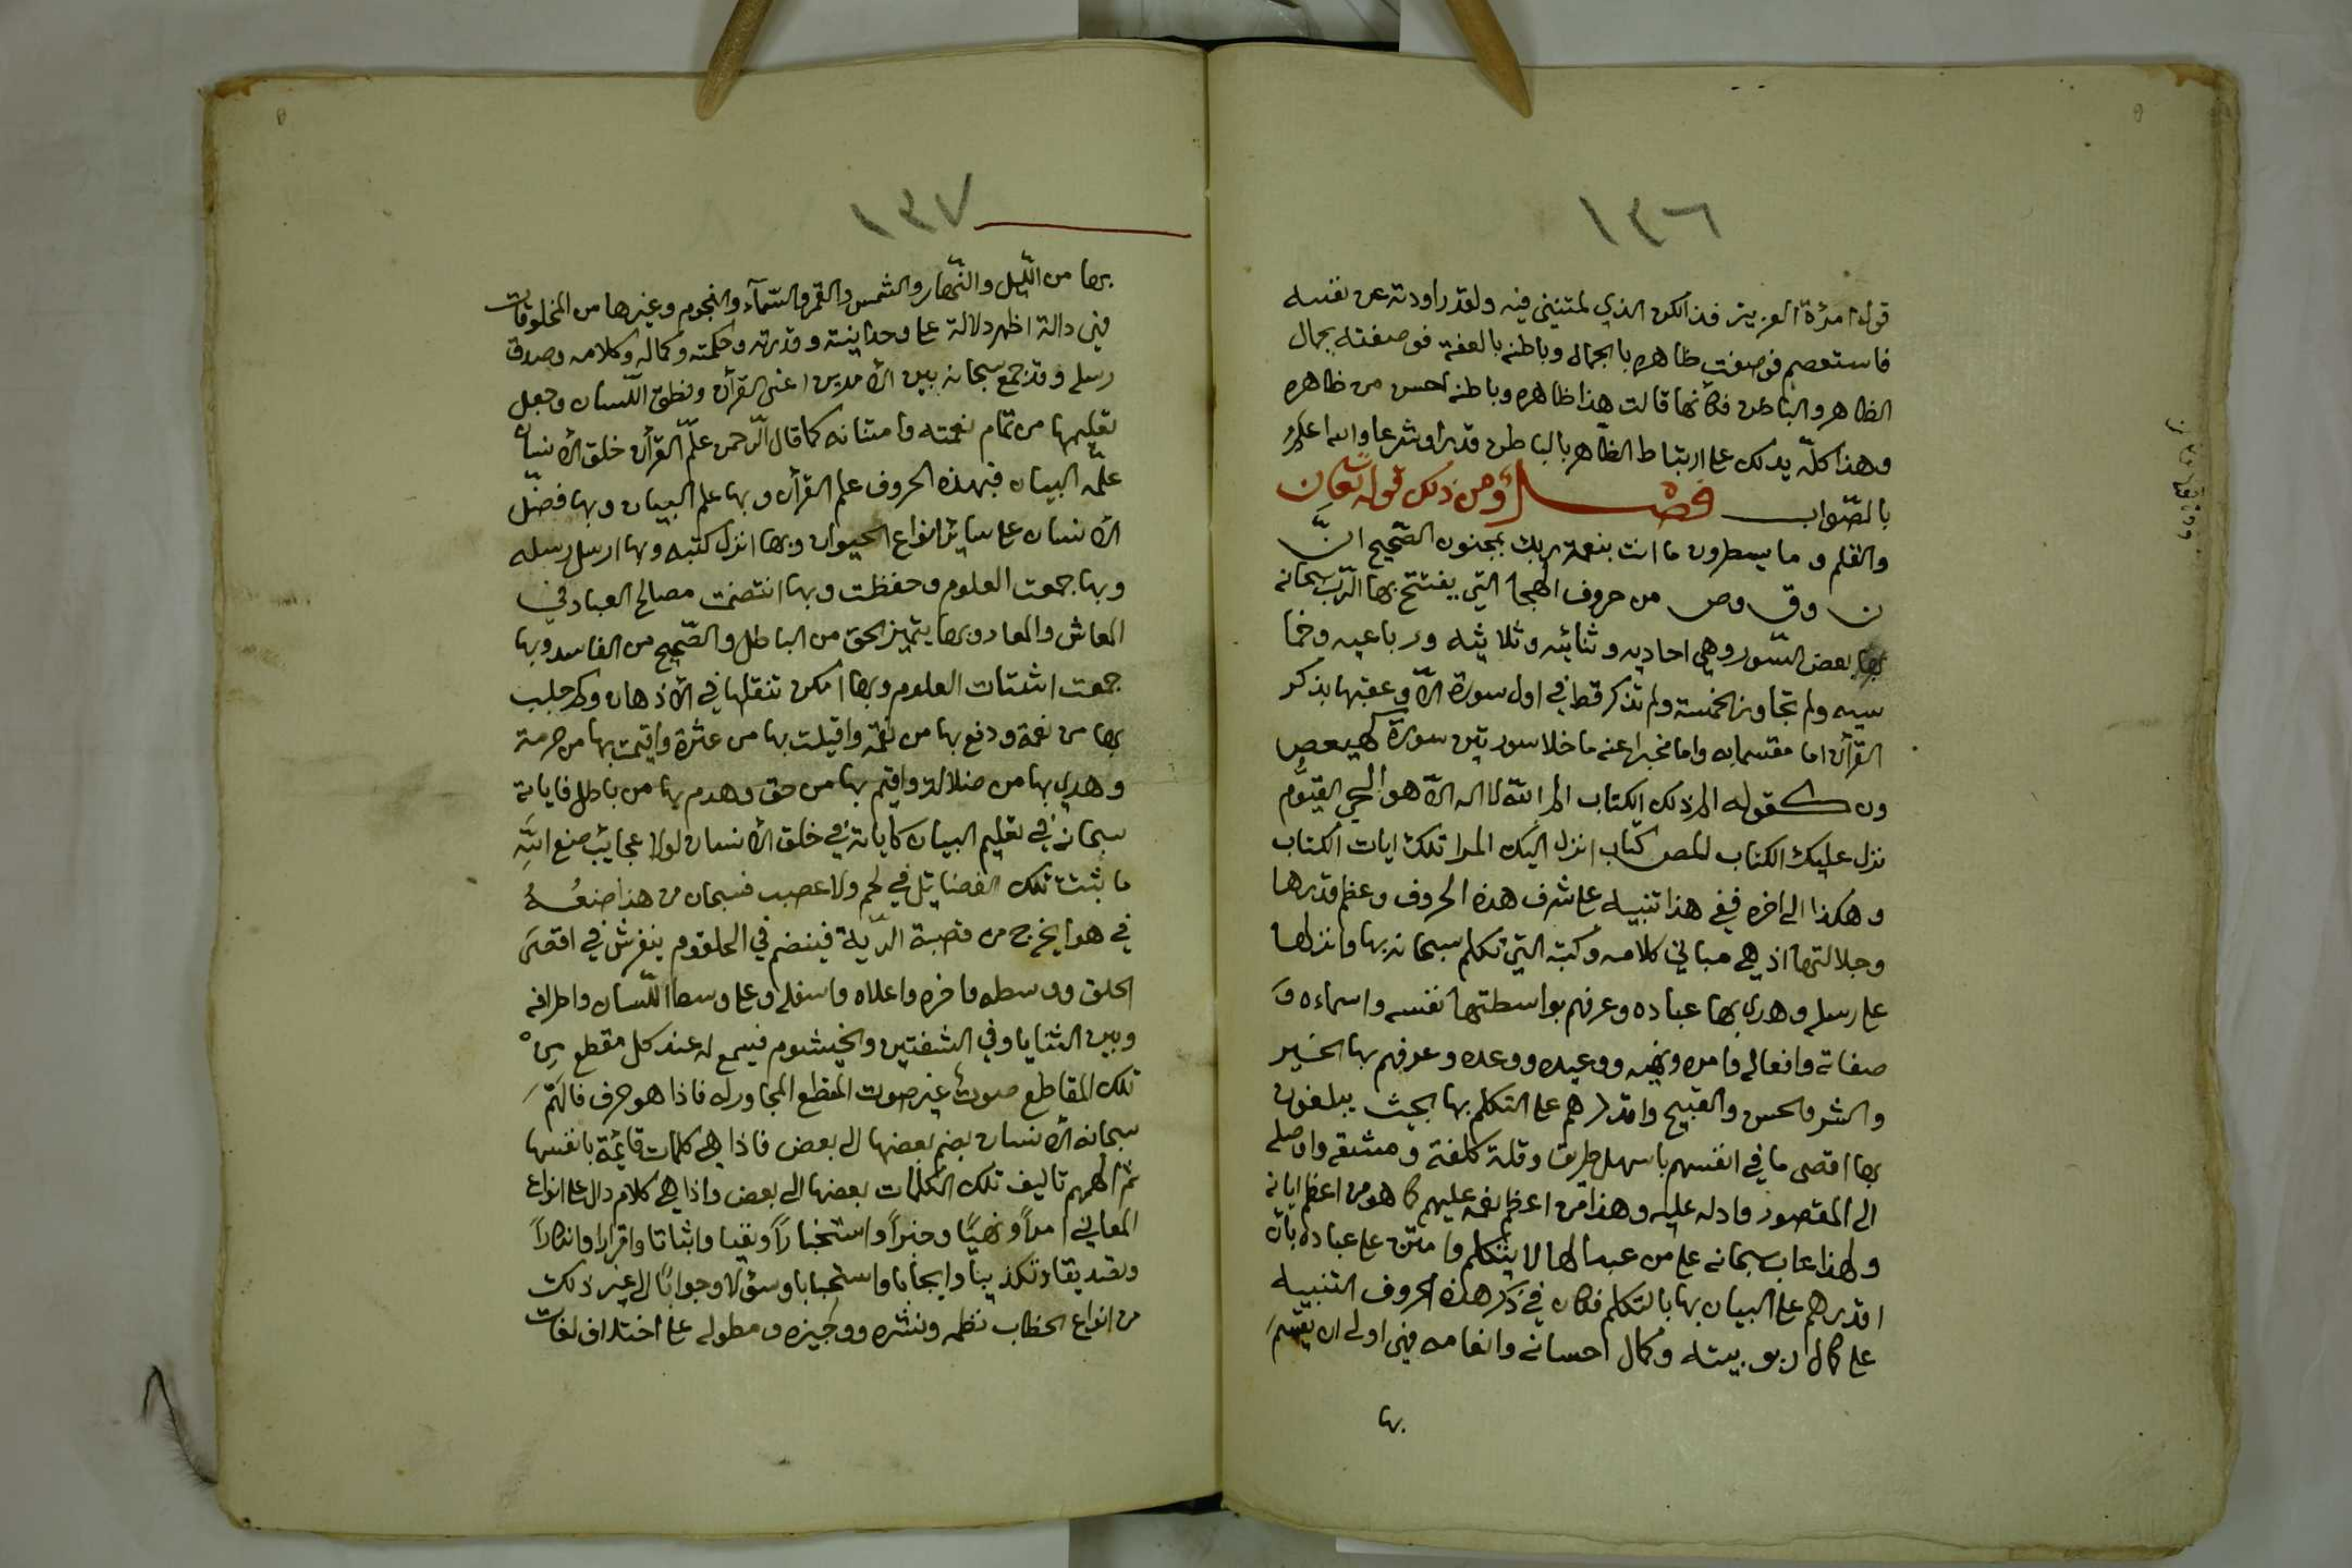 ١٣٦
قول امرءة العزيز فذالكن الذي لمتنني فيه ولقد راودته عن نفسه
فاستعصم فوصفت ظاهره بالجمال وباطنه بالعفة فوصفته بجمال
الظاهر والباطن فكأنها قالت هذا ظاهره وباطنه احسن من ظاهره
وهذا كلّه يدلك على ارتباط الظّاهر بالباطن قدرا وشرعا والله اعلم
بالصّواب فصل ومن ذلك قوله تعالى ن
والقلم وما يسطرون ما انت بنعمة ربك بمجنون الصّحيح انّ
ن وق وص من حروف الهجا التي يفتتح بها الرّب سبحانه
بها بعض السّور وهي احاديه وثنائيه وثلاثيه ورباعيه وخما
سيه ولم تجاوز الخمسة ولم تذكر قط في اول سورة الّا وعقبها بذكر
القرآن اما مقسما به واما مخبرا عنه ما خلا سورتين سورة كهيعص
ون كقوله الم ذلك الكتاب الم الله لا اله الّا هو الحي القيّوم
نزل عليك الكتاب المص كتاب انزل اليك المر تلك ايات الكتاب
وهكذا الى اخره ففي هذا تنبيه على شرف هذه الحروف وعظم قدرها
وجلالتها اذ هي مباني كلامه وكتبه التي تكلم سبحانه بها وانزلها
على رسله وهدى بها عباده وعرفهم بواسطتها نفسه واسماءه و
صفاته وافعاله وامره ونهيه ووعيده ووعده وعرفهم بها الخير
والشر والحسن والقبيح واقدرهم على التكلم بها بحيث يبلغون
بها اقصى ما في انفسهم باسهل طريق وقلة كلفة ومشقة واوصله
الى المقصود وادله عليه وهذا من اعظم نعمه عليهم كما هو من اعظم اياته
ولهذا عاب سبحانه على من عبد الها لا يتكلم وامتن على عباده بان
اقدرهم على البيان بها بالتكلم فكان في ذكر هذه الحروف التنبيه
على كمال ربوبيته وكمال احسانه وانعامه فهي اولى ان يقسم
بها
١٣٧
بها من اللّيل والنّهار والشمس والقمر والسّمآء والنجوم وغيرها من المخلوقات
فهي دالة اظهر دلالة على وحدانيته وقدرته وحكمته وكماله وكلامه وصدق
رسله وقد جمع سبحانه بين الأمرين اعني القرآن ونطق اللّسان وجعل
تعليمها من تمام نعمته وامتنانه كما قال الرّحمن علّم القرآن خلق الأنسان
علّمه البيان فبهذه الحروف علم القرآن وبها علم البيان وبها فضّل
الأنسان على ساير انواع الحيوان وبها انزل كتبه وبها ارسل رسله
وبها جمعت العلوم وحفظت وبها انتضمت مصالح العباد في
المعاش والمعاد وبها يتميز الحق من الباطل والصّحيح من الفاسد وبها
جمعت اشتات العلوم وبها امكن تنقلها في الأذهان وكم جلب
بها من نعمة ودفع بها من نقمة واقيلت بها من عثرة واقيمت بها من حرمة
وهدي بها من ضلالة واقيم بها من حق وهدم بها من باطل فاياته
سبحانه في تعليم البيان كاياته في خلق الأنسان لولا عجايب صنع الله
ما ثبتت تلك الفضايل في لحم ولا عصب فسبحان من هذا صنعه
في هوا يخرج من قصبة الرّية فينضم في الحلقوم ينفرش في اقصى
الحلق ووسطه واخره واعلاه واسفله وعلى وسط اللّسان واطرافه
وبين الثنايا وفي الشفتين والخيشوم فيسمع له عند كل مقطع من
تلك المقاطع صوت غير صوت المقطع المجاور له فاذا هو حرف فالهم
سبحانه الأنسان بضم بعضها الى بعض فاذا هي كلمات قائمة بانفسها
ثم الهمهم تاليف تلك الكلمات بعضها الى بعض واذا هي كلام دال على انواع
المعاني امراً ونهيًا وخبراً واستخباراً ونفيا واثباتا واقرارا وانكاراً
وتصديقا وتكذيبا وايجابا واستحبابا وسؤلا وجوابًا الى غير ذلك
من انواع الخطاب نظمه ونثره ووجيزه ومطوله على اختلاف لغات